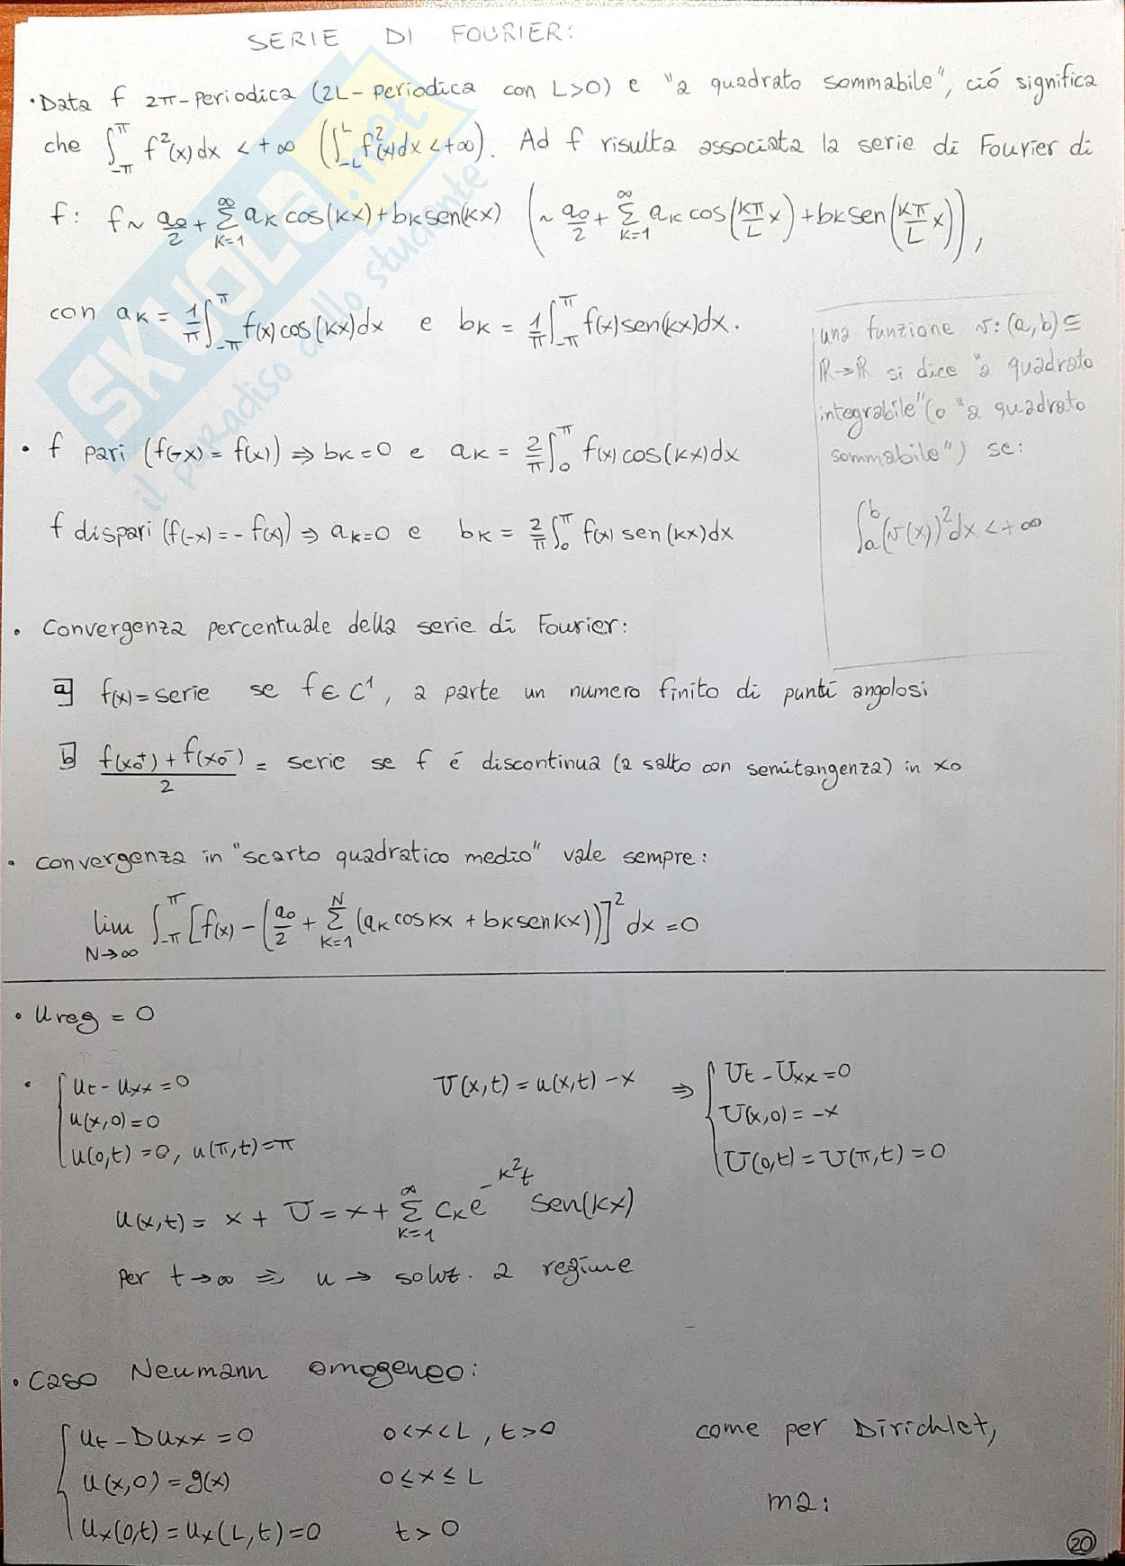 SERIE DI FOURIER:
• Data f 2π-periodica (2L-periodica con L>0) e "a quadrato sommabile", ció significa
che ∫_{-π}^{π} f²(x)dx < +∞ (∫_{-L}^{L} f²(x)dx < +∞). Ad f risulta associata la serie di Fourier di
f: f ~ a₀/2 + Σ_{k=1}^{∞} aₖ cos(kx) + bₖ sen(kx) (~ a₀/2 + Σ_{k=1}^{∞} aₖ cos(kπ/L x) + bₖ sen(kπ/L x)),
con aₖ = 1/π ∫_{-π}^{π} f(x) cos(kx)dx e bₖ = 1/π ∫_{-π}^{π} f(x) sen(kx)dx.
una funzione v: (a,b) ⊆
ℝ→ℝ si dice "a quadrato
integrabile" (o "a quadrato
sommabile") se:
∫_{a}^{b} (v(x))² dx < +∞
• f pari (f(-x) = f(x)) ⇒ bₖ = 0 e aₖ = 2/π ∫_{0}^{π} f(x) cos(kx)dx
f dispari (f(-x) = - f(x)) ⇒ aₖ = 0 e bₖ = 2/π ∫_{0}^{π} f(x) sen(kx)dx
• Convergenza percentuale della serie di Fourier:
a) f(x) = serie se f ∈ C¹, a parte un numero finito di punti angolosi
b) (f(x₀⁺) + f(x₀⁻))/2 = serie se f é discontinua (a salto con semitangenza) in x₀
• Convergenza in "scarto quadratico medio" vale sempre:
lim_{N→∞} ∫_{-π}^{π} [f(x) - (a₀/2 + Σ_{k=1}^{N} (aₖ cos kx + bₖ sen kx))]² dx = 0
• Ureg = 0
• { Ut - Uxx = 0
u(x,0) = 0
u(0,t) = 0, u(π,t) = π
U(x,t) = u(x,t) - x ⇒ { Ut - Uxx = 0
U(x,0) = -x
U(0,t) = U(π,t) = 0
u(x,t) = x + U = x + Σ_{k=1}^{∞} cₖ e^{-k²t} sen(kx)
per t→∞ ⇒ u → soluz. a regime
• Caso Neumann omogeneo:
{ Ut - DUxx = 0 0<x<L, t>0 come per Dirichlet,
u(x,0) = g(x) 0 ≤ x ≤ L ma:
Ux(0,t) = Ux(L,t) = 0 t > 0
20
SKUOLA.net
il paradiso dello studente